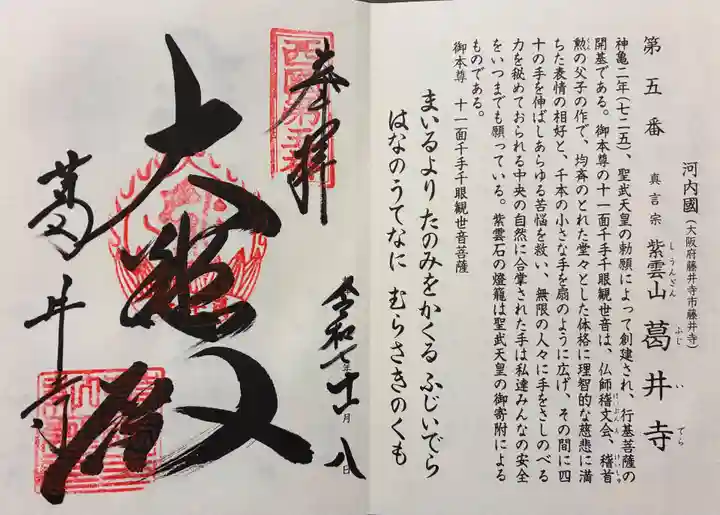 第五番
河内國(大阪府藤井寺市藤井寺)
真言宗 紫雲山 葛井寺
しうんざん
ふじいでら
神亀二年(七二五)、聖武天皇の勅願によって創建され、行基菩薩の
開基である。御本尊の十一面千手千眼観世音は、仏師稽文会、稽首
勲の父子の作で、均斉のとれた堂々とした体格に理智的な慈悲に満
ちた表情の相好と、千本の小さな手を扇のように広げ、その間に四
十の手を伸ばしあらゆる苦悩を救い、無限の人々に手をさしのべる
力を秘めておられる中央の自然に合掌された手は私達みんなの安全
をいつまでも願っている。紫雲石の燈籠は聖武天皇の御寄附による
ものである。
御本尊 十一面千手千眼観世音菩薩
まいるより たのみをかくる ふじいでら
はなのうてなに むらさきのくも
奉拝
西國第五番
令和七年十一月八日
大悲殿
葛井寺